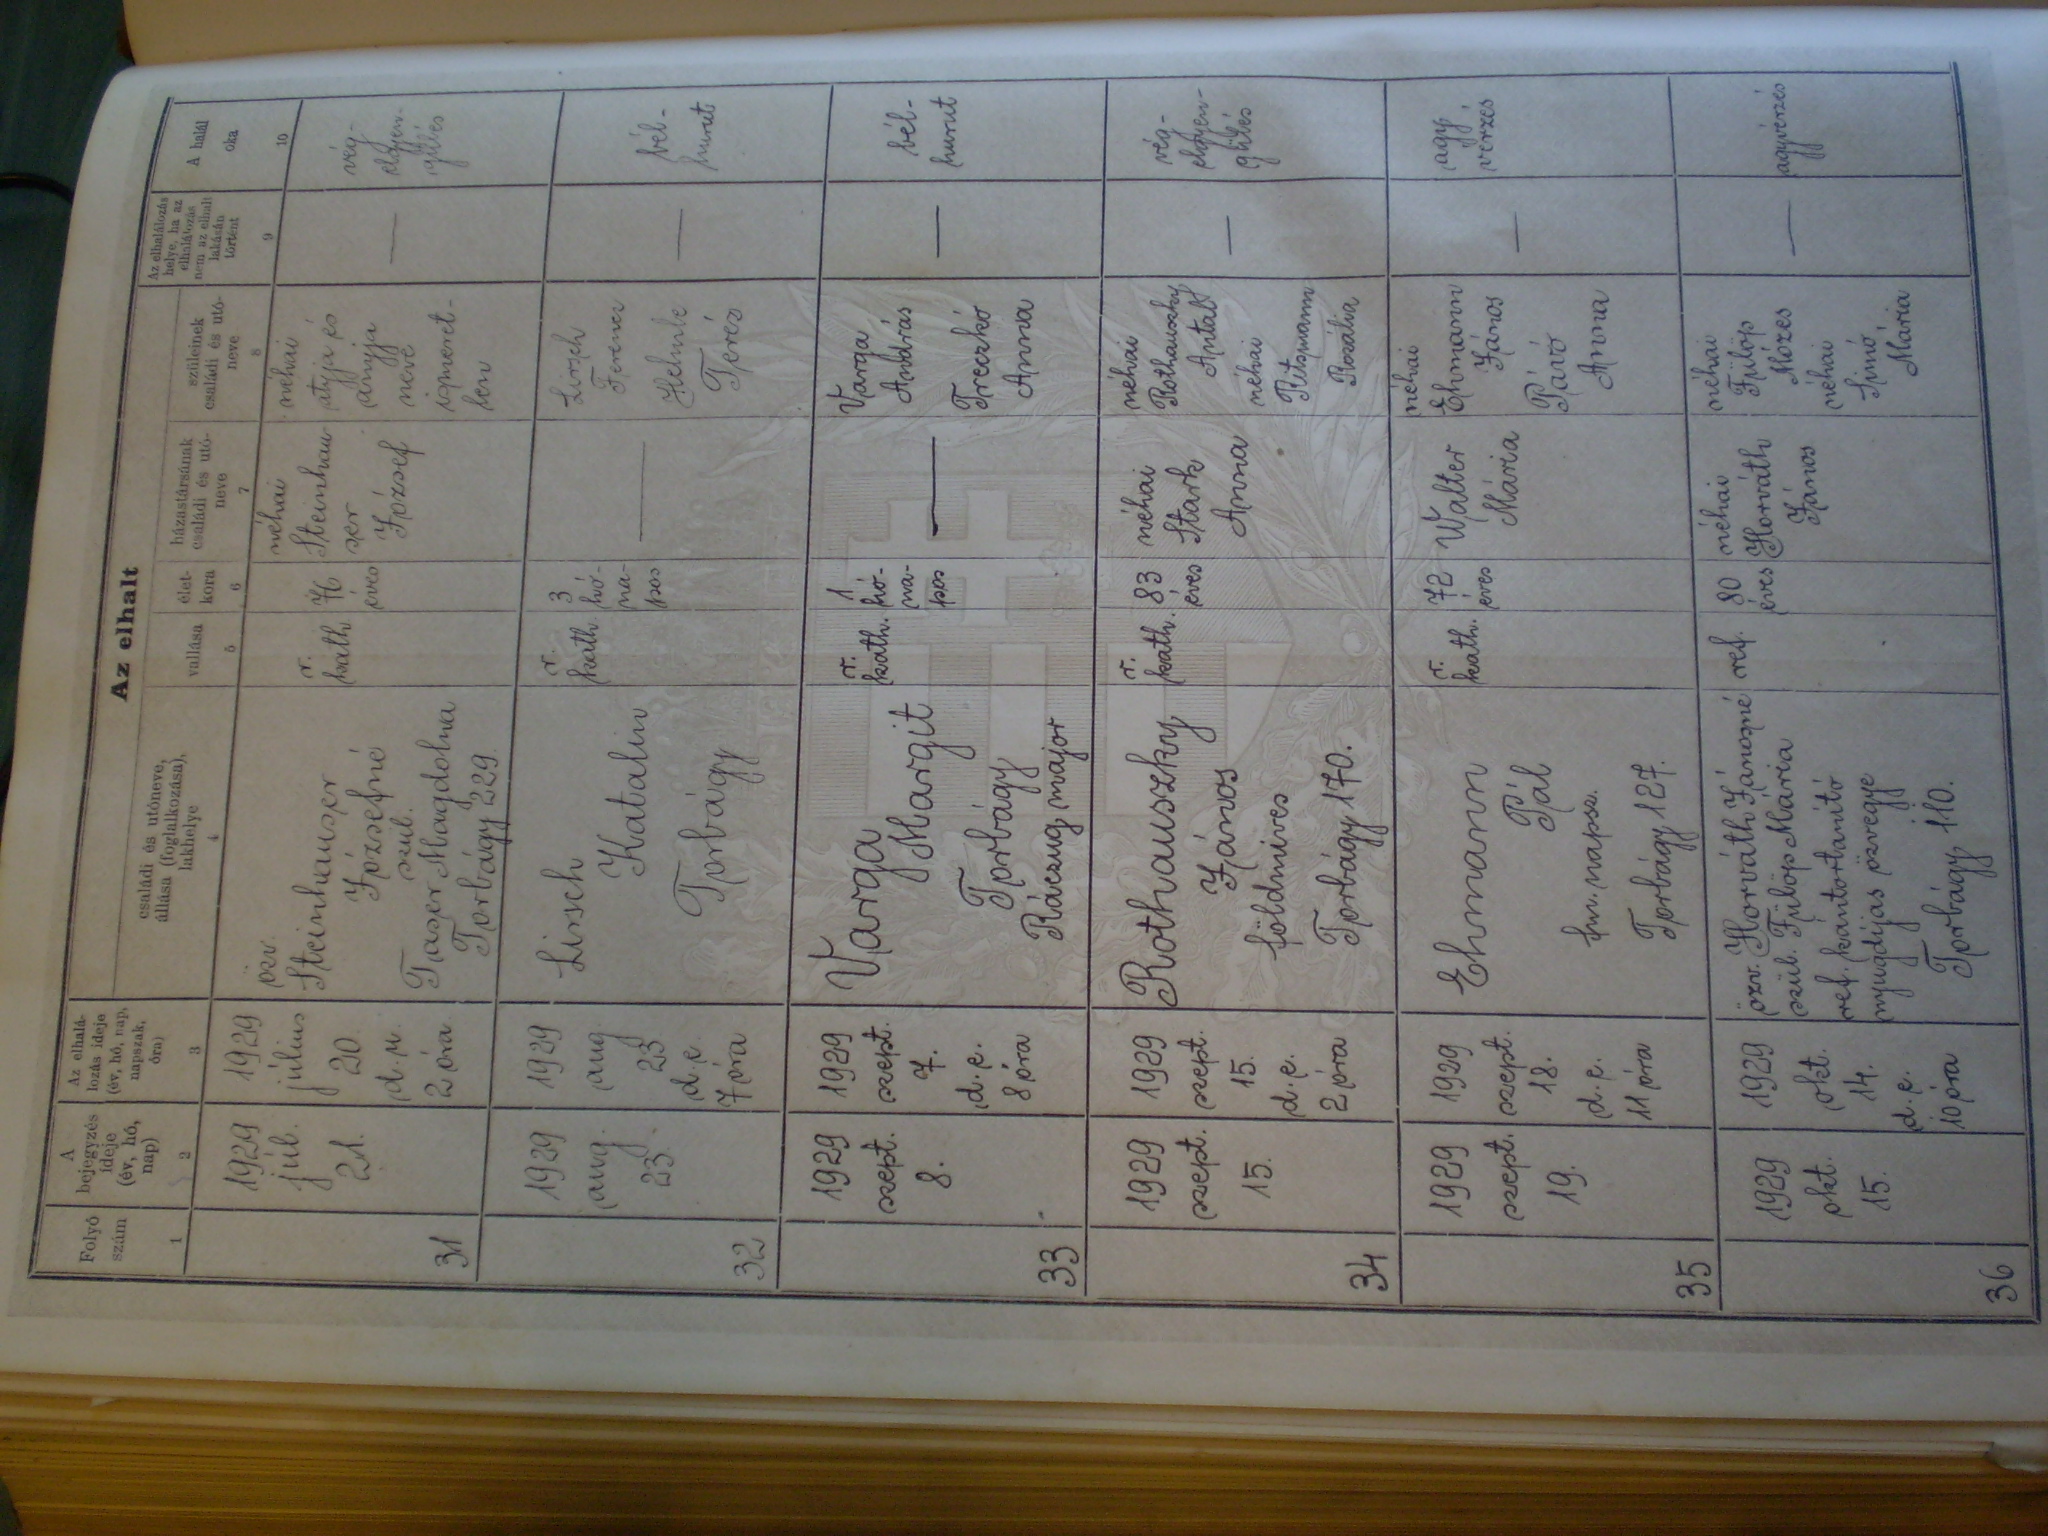 Az elhalt
Folyó
szám
1
A
bejegyzés
ideje
(év, hó,
nap)
2
Az elhalá-
lozás ideje
(év, hó, nap,
napszak,
óra)
3
családi és utóneve,
állása (foglalkozása),
lakhelye
4
vallása
5
élet-
kora
6
házastársának
családi és utó-
neve
7
szüleinek
családi és utó-
neve
8
Az elhalálozás
helye, ha az
elhalálozás
nem az elhalt
lakásán
történt
9
A halál
oka
10
31
1929
júl.
21.
1929
július
20.
d. u.
2 óra
özv.
Steinhauszer
Józsefné
szül.
Taszer Magdolna
Torbágy 229.
r.
kath
76
éves
néhai
Steinhau
szer
József
néhai
atyja és
anyja
neve
ismeret-
len
—
vég-
elgyen-
gülés
32
1929
aug.
23.
1929
aug
23
d. e.
7 óra
Lirsch
Katalin
Torbágy
r.
kath.
3
hó-
na-
pos
—
Lirsch
Ferenc
Teréz
—
bél-
hurut
33
1929
szept.
8.
1929
szept.
7.
d. e.
8 óra
Varga
Margit
Torbágy
Ráczug major
r.
kath.
1
hó-
na-
pos
—
Varga
András
Treszkó
Anna
—
bél-
hurut
34
1929
szept.
15.
1929
szept.
15.
d. e.
2 óra
Rothauszky
János
földmives
Torbágy 170.
r.
kath.
83
éves
néhai
Stark
Anna
néhai
Rothauszky
Antal
néhai
Rozália
—
vég-
elgyen-
gülés
35
1929
szept.
19.
1929
szept.
18.
d. e.
11 óra
Ehmann
Pál
fmv. naps.
Torbágy 127.
r.
kath.
72
éves
Walter
Mária
néhai
Ehmann
János
Páró
Anna
—
agy
vérzés
36
1929
okt.
15.
1929
okt.
14.
d. e.
10 óra
özv. Horváth Jánosné
szül. Fülöp Mária
ref. kántortanító
nyugdíjas özvegye
Torbágy 110.
ref.
80
éves
néhai
Horváth
János
néhai
Fülöp
Mózes
néhai
Simó
Mária
—
agyvérzés